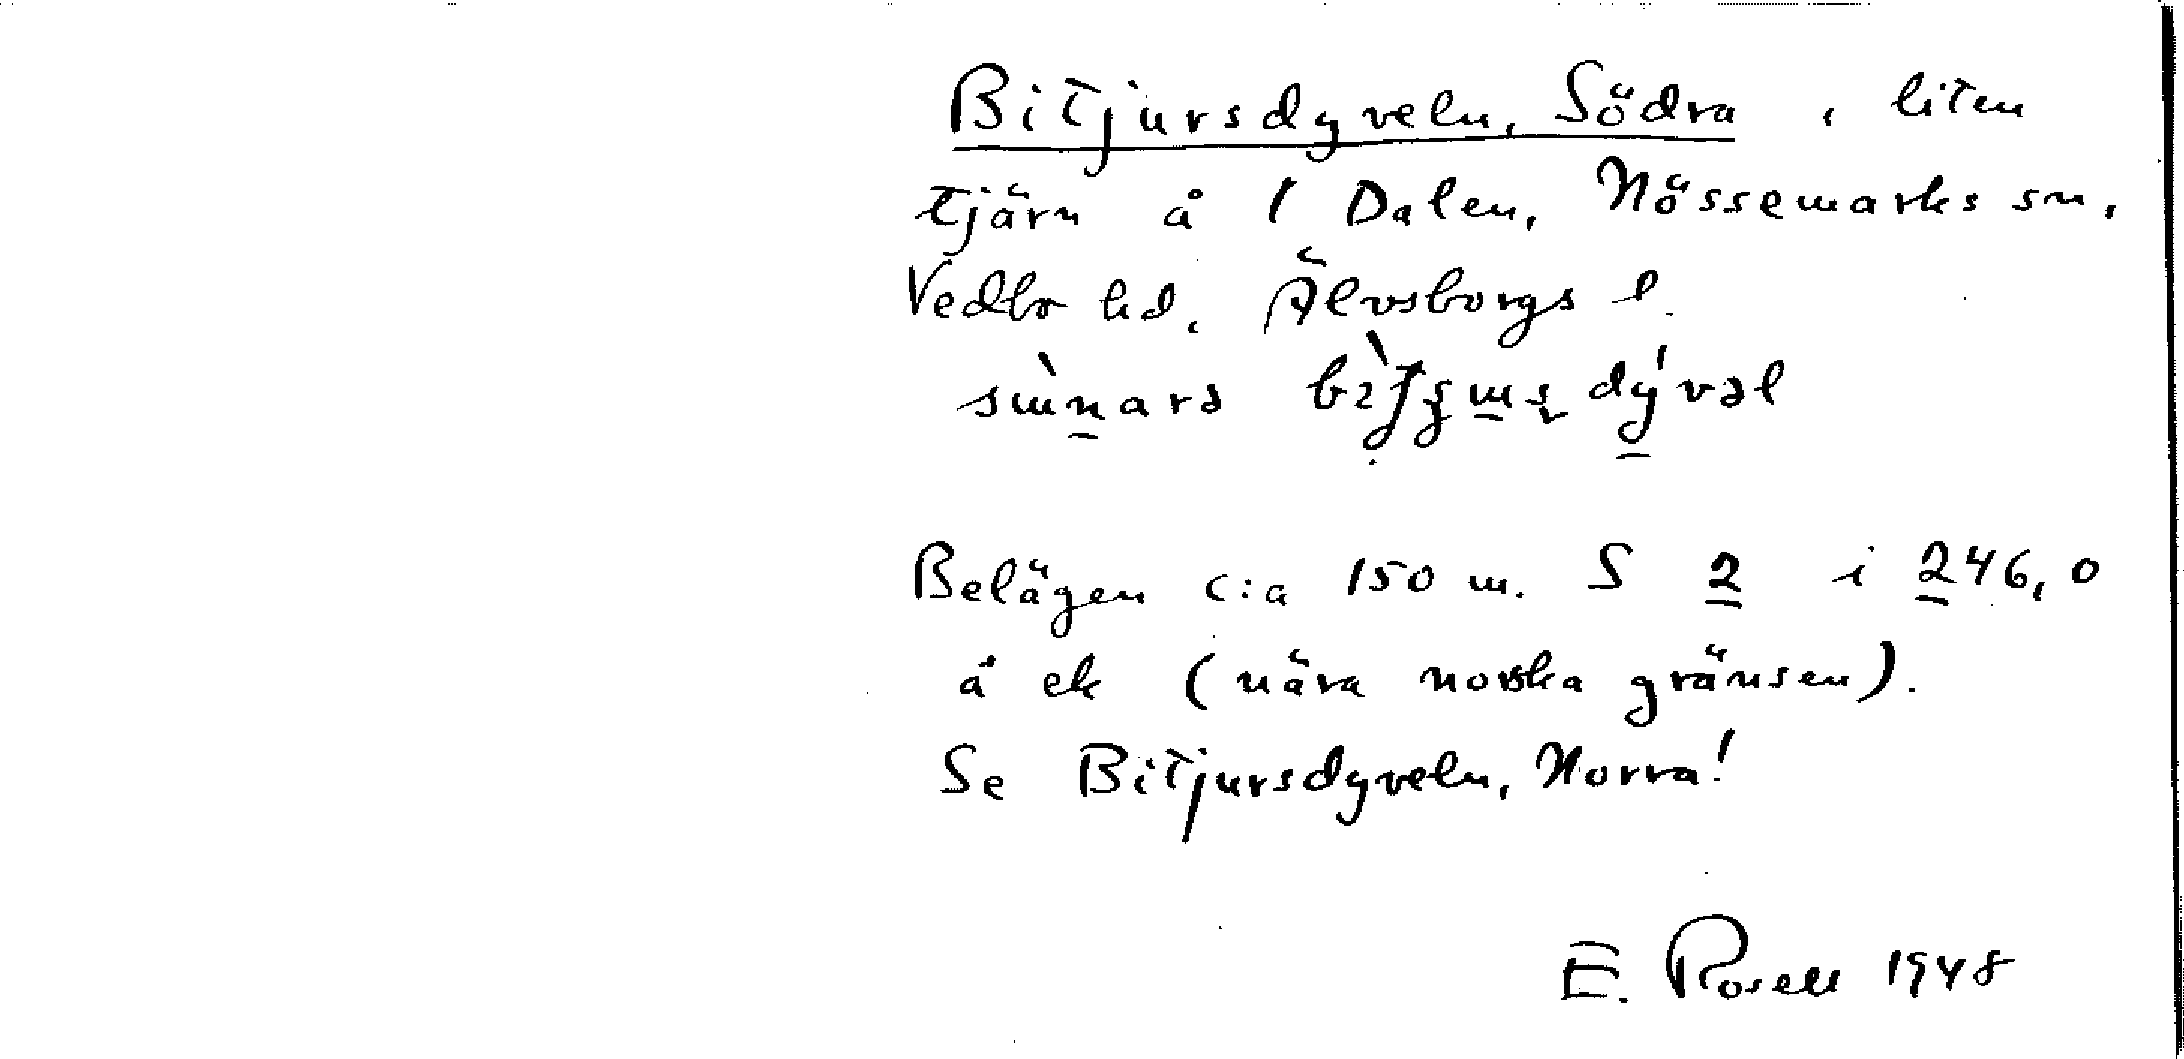 Bitjursdyveln, Södra, liten
tjärn å 1 Dalen, Nössemarks sn,
Vedbo hd, Älvsborgs l.
dỳvəl
Belägen c:a 150 m. S 2 i 246,0
å ek (nära norska gränsen).
Se Bitjursdyveln, Norra!
E. Rosell 1948